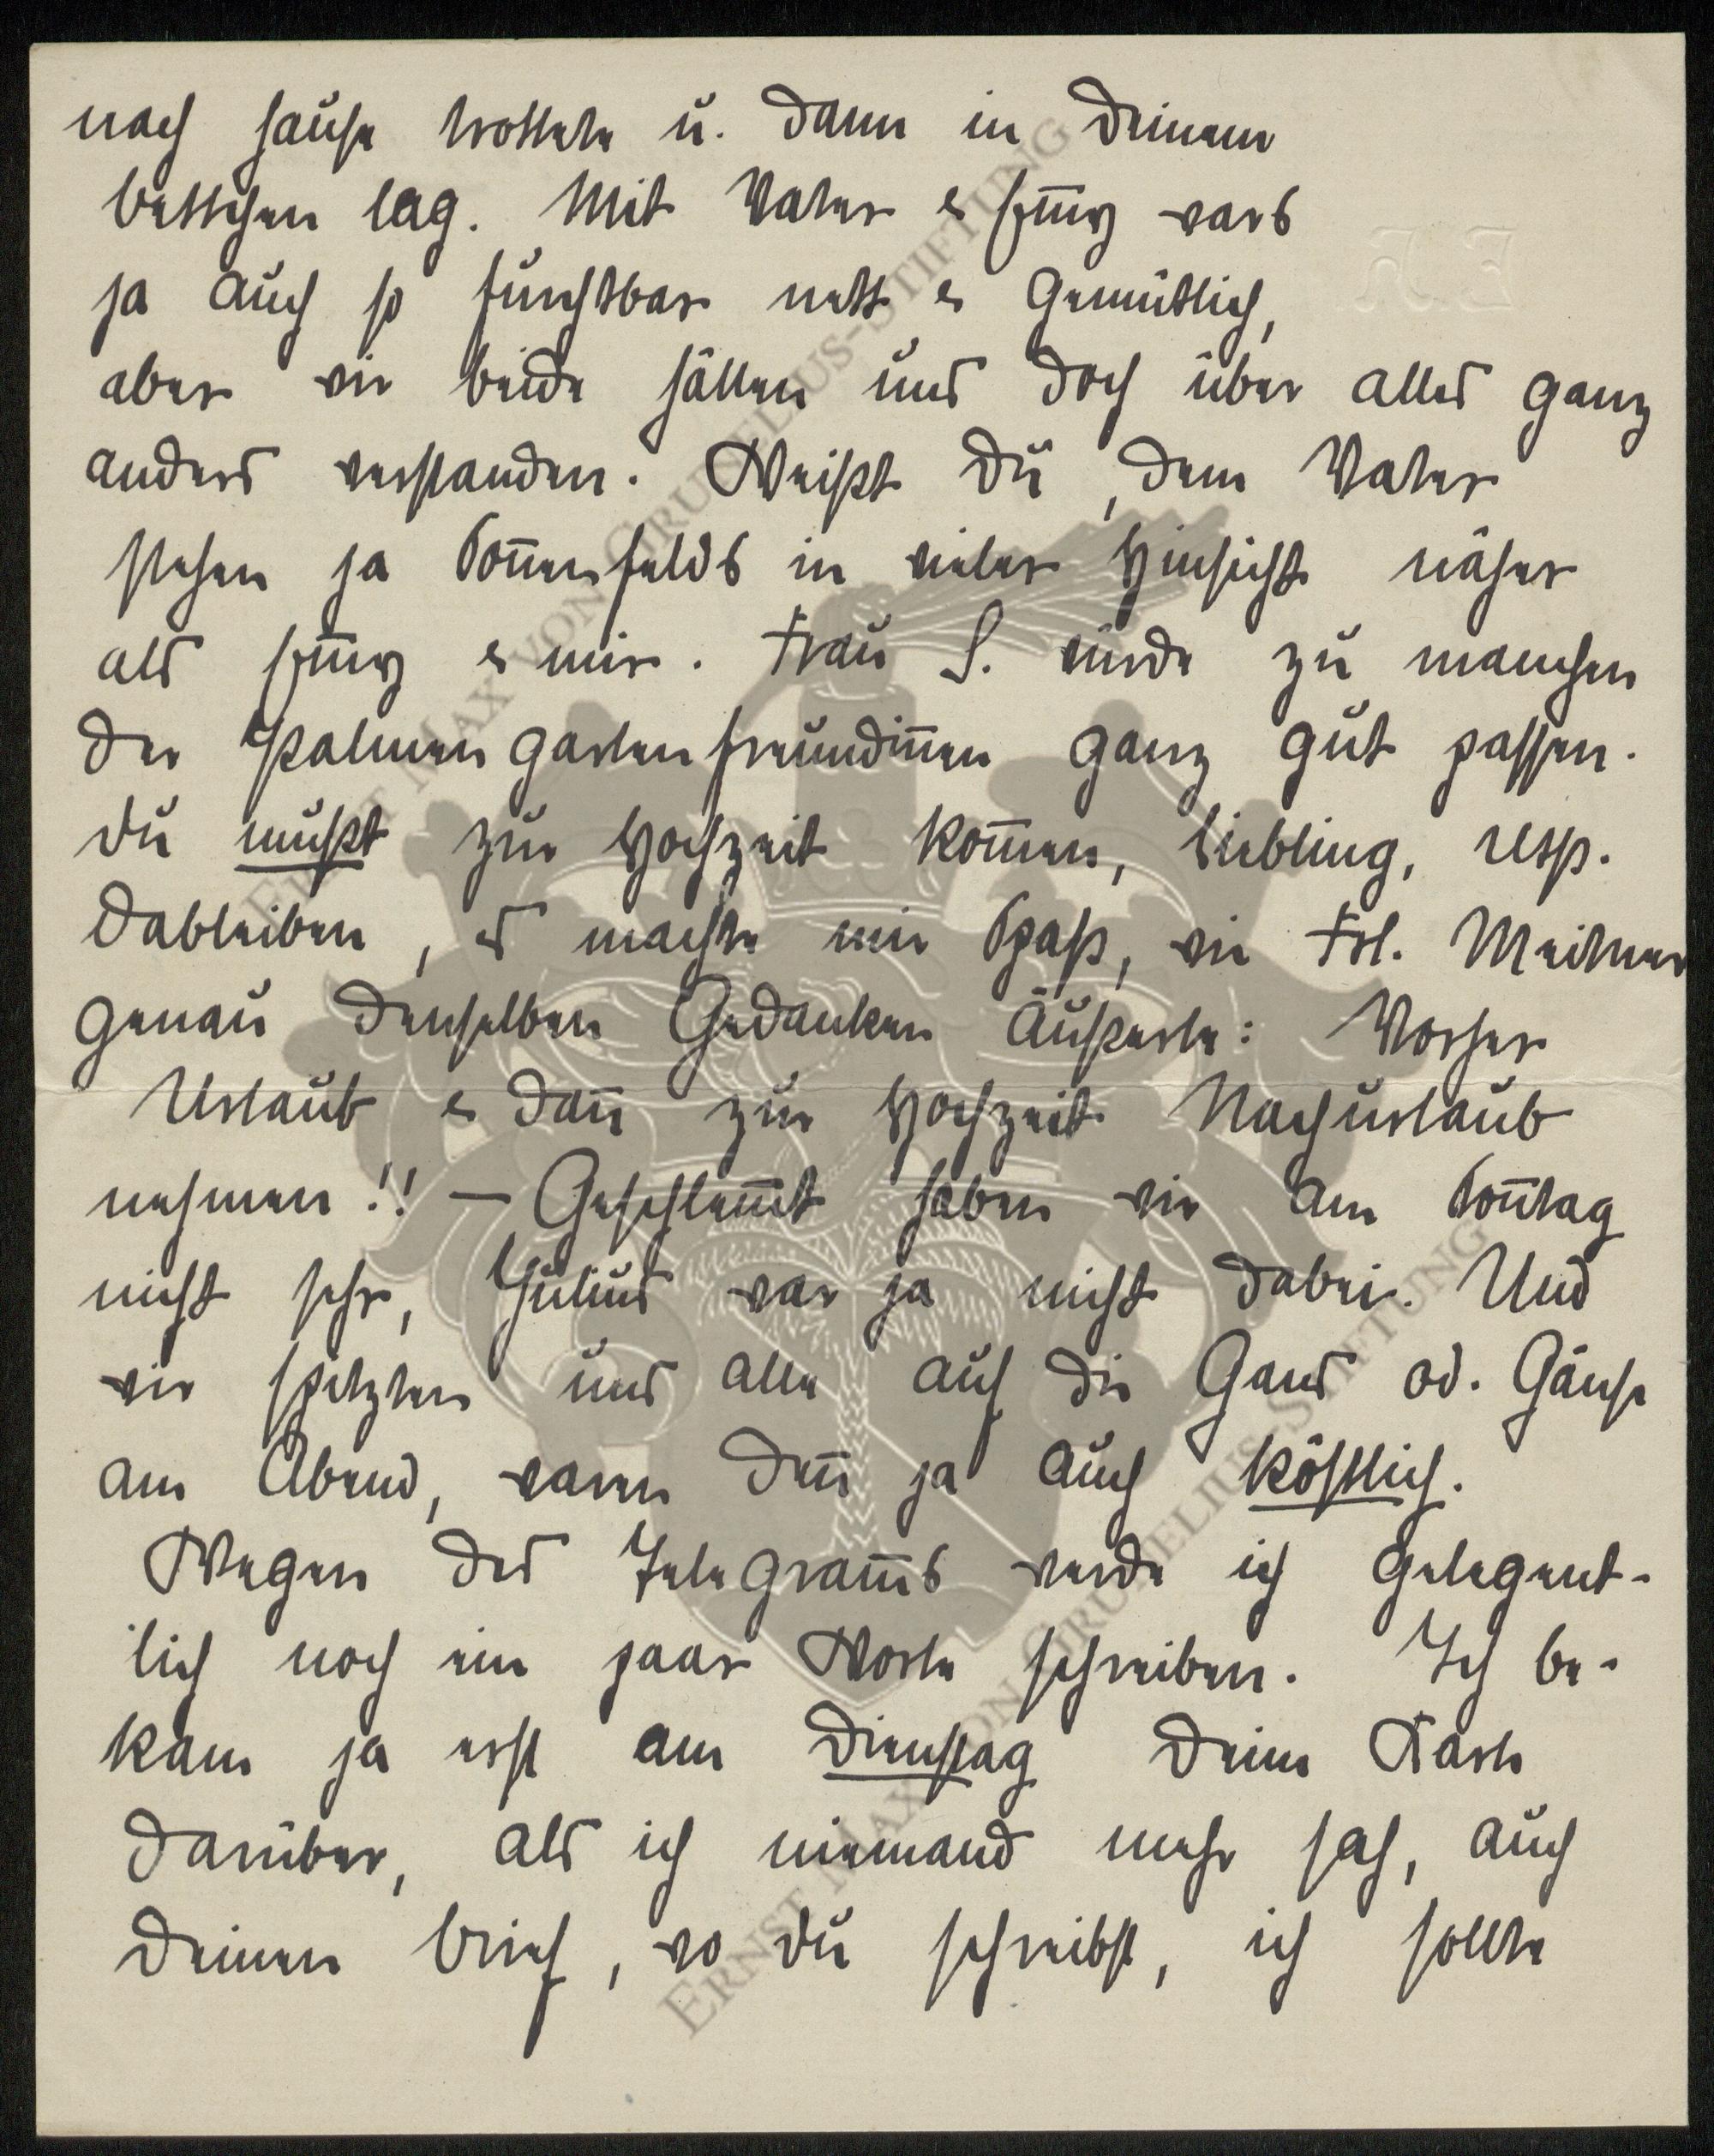 nach hause trottete u. dann in Deinem
bettchen lag. Mit Vater & wars
ja auch so furchtbar nett & gemütlich,
aber wir beide hätten uns doch über alles ganz
anders verstanden. Weißt Du, dem Vater
stehen ja Sonnenfelds in vieler Hinsicht näher
als & mir. Frau S. würde zu manchen
der Palmengartenfreundinnen ganz gut passen.
Du mußt zur Hochzeit kommen, Liebling, resp.
dableiben, es machte mir Spaß, wie Frl. Meitner
genau denselben Gedanken äußerte: Vorher
Urlaub & dann zur Hochzeit Nachurlaub
nehmen!! – Geschlemmt haben wir am Sonntag
nicht sehr, Julius war ja nicht dabei. Und
wir spitzten uns alle auf die Gans od. Gänse
am Abend, waren denn ja auch köstlich.
Wegen des Telegramms werde ich gelegent-
lich noch ein paar Worte schreiben. Ich be-
kam ja erst am Dienstag Deine Karte
darüber, als ich niemand mehr sah, auch
Deinen brief, wo Du schreibst, ich sollte
E.R
ERNST MAX VON GRUNELIUS-STIFTUNG
ERNST MAX VON GRUNELIUS-STIFTUNG